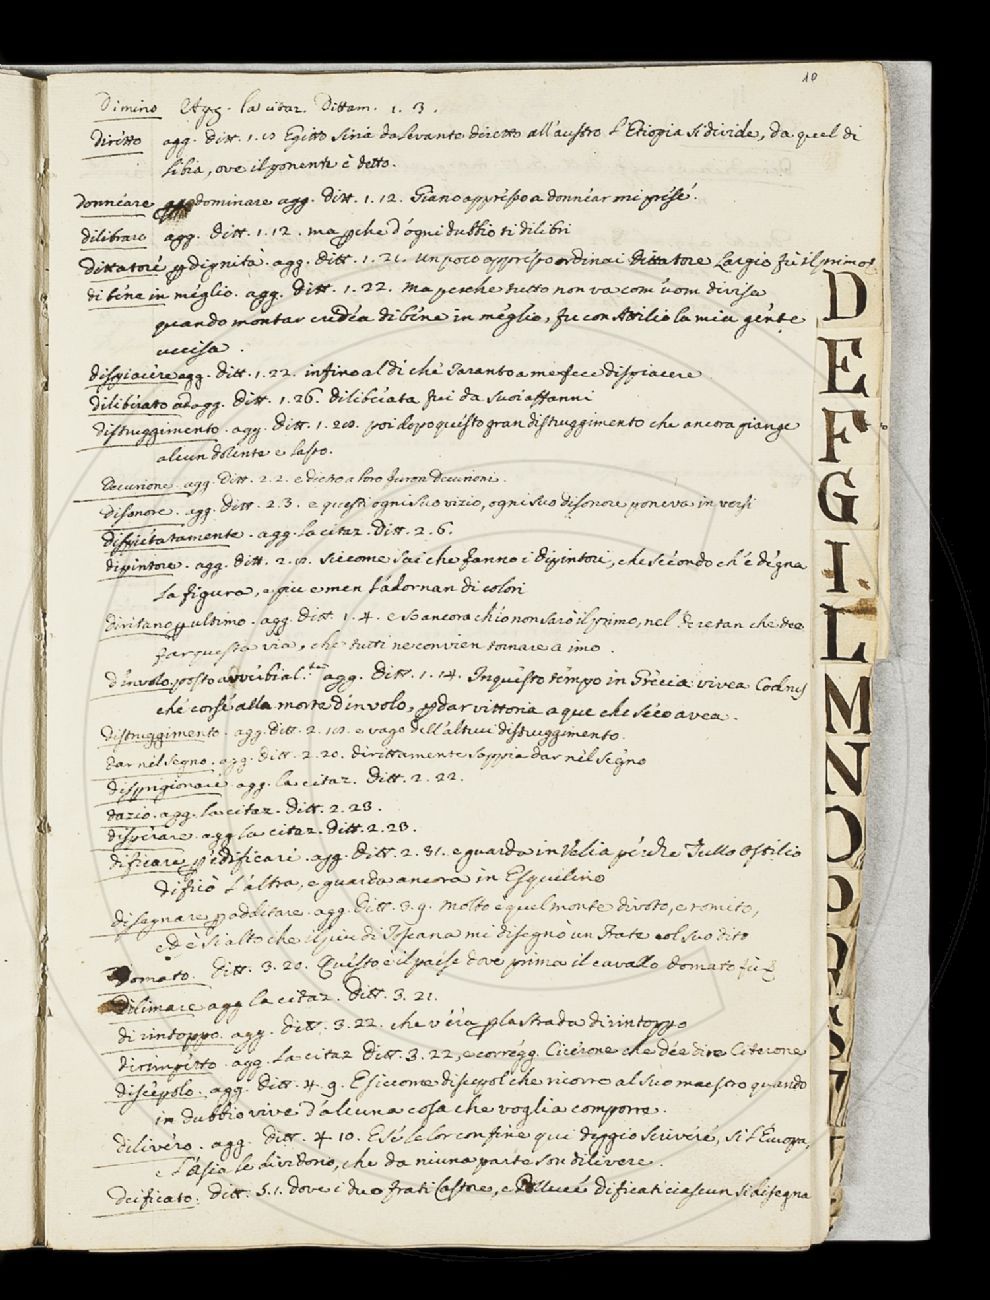 10
Dimino Agg. la citaz. Dittam. 1. 3.
Diritto agg. ditt. 1. Egitto Siria da levante diretto all'austro l'Etiopia si divide, da quel di
libia, ove il ponente è detto.
donneare dominare agg. ditt. 1. 12. Piano appresso a donnear mi prese.
dilibrare agg. ditt. 1. 12. ma perche d'ogni dubbio ti dilibri
dittatore per dignità. agg. ditt. 1. 21. un poco appresso ordinai dittatore Largio fu il primo
di bene in meglio. agg. ditt. 1. 22. ma perche tutto non va com' uom divisa
quando montar credea di bene in meglio, fu con Attilio la mia gente
uccisa.
dispiacere agg. ditt. 1. 22. infino al di che Taranto a me fece dispiacere
diliberato ad agg. ditt. 1. 26. diliberata fui da suoi affanni
distruggimento. agg. ditt. 1. poi dopo questo gran distruggimento che ancora piange
alcun dolente e lasso.
Decurione. agg. ditt. 2. 2. e dietro a loro furon decurioni.
disonore. agg. ditt. 2. 3. e questi ogni suo vizio, ogni suo disonore poneva in versi
dispietatamente. agg. la citaz. ditt. 2. 6.
dipintore. agg. ditt. 2. siccome sai che fanno i dipintori, che secondo ch'è degna
la figura, e più e men l'adornan di colori
diritano per ultimo. agg. ditt. 1. 4. e so ancora ch'io non sarò il primo, nel deretan che dee
far questa via, che tutti ne convien tornare a imo.
d'involo. posto avverbial.te agg. ditt. 1. 14. In questo tempo in Grecia vivea Codrus
che corse alla morte d'involo, per dar vittoria a que che seco avea.
distruggimento. agg. ditt. 2. e vago dell'altrui distruggimento.
dar nel segno. agg. ditt. 2. 20. dirittamente sappia dar nel segno
disprigionare agg. la citaz. ditt. 2. 22.
dazio. agg. la citaz. ditt. 2. 23.
disperare agg la citaz. ditt. 2. 23.
dificare per edificare. agg. ditt. 2. 31. e guarda in Velia perche Tullo Ostilio
dificò l'altra, e guarda ancora in Esquilino
disegnare per additare. agg. ditt. 3. 9. Molto è quel monte divoto, e romito,
ed è sì alto che il più di Toscana mi disegnò un Frate col suo dito
domato. ditt. 3. 20. Questo è il paese dove prima il cavallo domato fu
dilimare agg la citaz. ditt. 3. 21.
di rintoppo. agg. ditt. 3. 22. che v'era per la strada di rintoppo
dirimpetto. agg. la citaz ditt. 3. 22, e corregg. Cicerone che dee dire Citerone
discepolo. agg. ditt. 4. 9. E siccome discepol che ricorre al suo maestro quando
in dubbio vive d'alcuna cosa che voglia comporre.
dilivero. agg. ditt. 4 10. E se le lor confine qui deggio scrivere, si l'Europa,
e l'Asia le dividono, che da niuna parte son dilivere.
deificato. ditt. 5. 1. dove i duo frati Castore, e Polluce dificati ciascun si disegna
D
E
F
G
I
L
M
N
O
P
Q
R
S
T